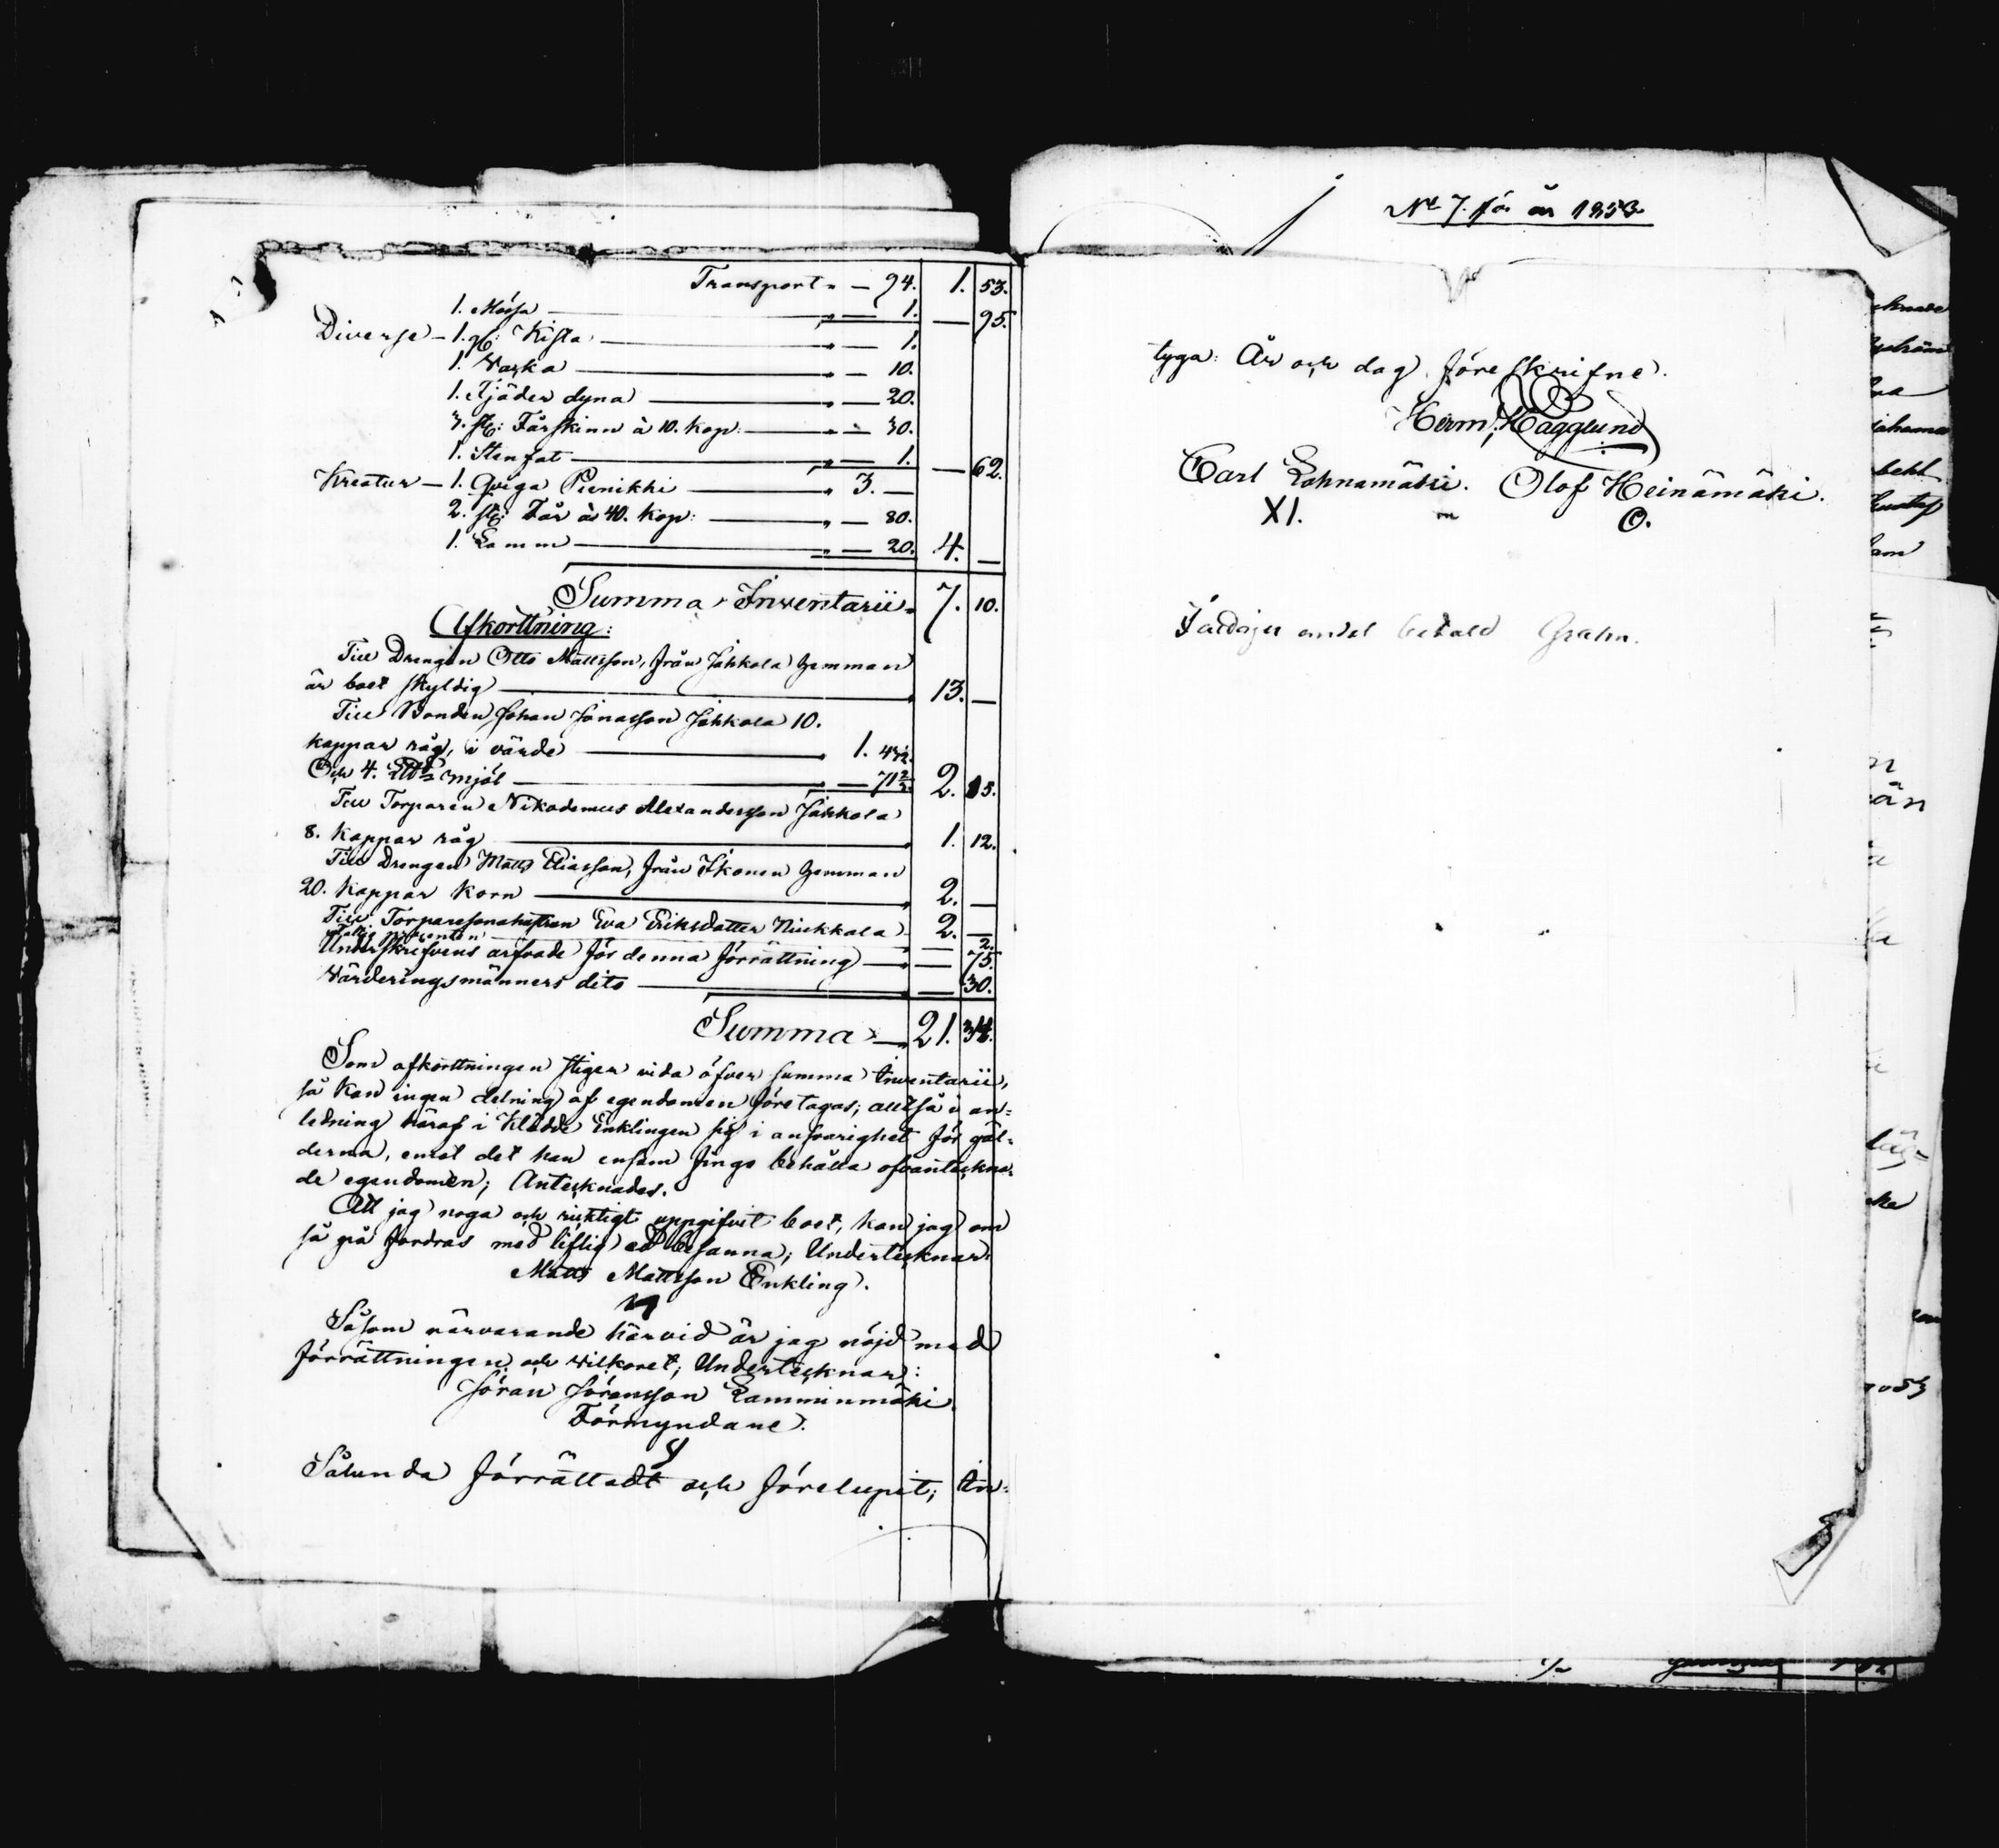 Transport " — 94. 1. 53.
1. Mössa " — 1. — 95.
Diverse — 1. st: Kista " — 1.
1. Vacka " — 10.
1. Fjäder dyna " — 20.
3. st: Fårskinn à 10. kop: " — 30.
1. Stenfat " — 1. — 62.
Kreatur — 1. Qviga Pienikki " 3. —
2. st: Får à 40. kop: " — 80.
1. Lamm " — 20. 4. —
Summa Inventarii " 7. 10.
Afkorttning:
Till Drengen Otto Mattsson, från Jåkkola hemman
är boet skyldig " 13. —
Till Bonden Johan Jonasson Jåkkola 10.
kappar råg, i värde " 1.
Och 4. mjöl " — 71 2/ 2. 15.
Till Torparen Nikodemus Alexandersson Jåkkola
8. kappar råg " 1. 12.
Till Drengen Matts Eliasson, från Ikonen hemman
20. kappar korn " 2. —
Till Eva Eriksdotter Niukkala 2. —
Fattig procenten — 2.
Underskrefvens arfvode för denna förrättning " — 75.
Värderingsmänners dito " — 30.
Summa " 21. 34.
Som afkorttningen stiger vida öfver summa Inventarii,
så kan ingen delning af egendomen företagas; alltså i an=
ledning häraf i klädde Enklingen sig i ansvarighet för gäl=
derna, emot det han ensam finge behålla ofvanteckna=
de egendomen; Antecknades.
Att jag noga och riktigt uppgifvit boet, kan jag om
så på fordras med liflig ed besanna; Undertecknar:
Matts Mattsson Enkling.
Såsom närvarande härvid är jag nöjd med
förrättningen och vilkoret; Undertecknar:
Jöran Jöransson Lamminmäki
Förmyndare.
Sålunda förrättadt och förelupit; in=
No 7. för år 1853.
tyga: År och dag föreskrifne.
Herm: Hägglund
Carl Lahnamäki. Olof Heinämäki.
XI. O.
andel betald Grahn.